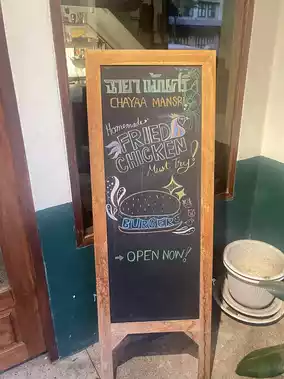 CHAYAA MANSRI
Homemade
FRIED
CHICKEN
Must Try!
BURGERS
→ OPEN NOW!